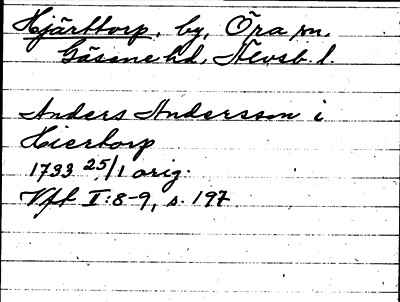 Hjärttorp, by, Öra sn.
Gäsene hd, Älvsb. l.
Anders Andersson i
Hiertorp
1733 25/1 orig.
Vft I:8-9, s. 197